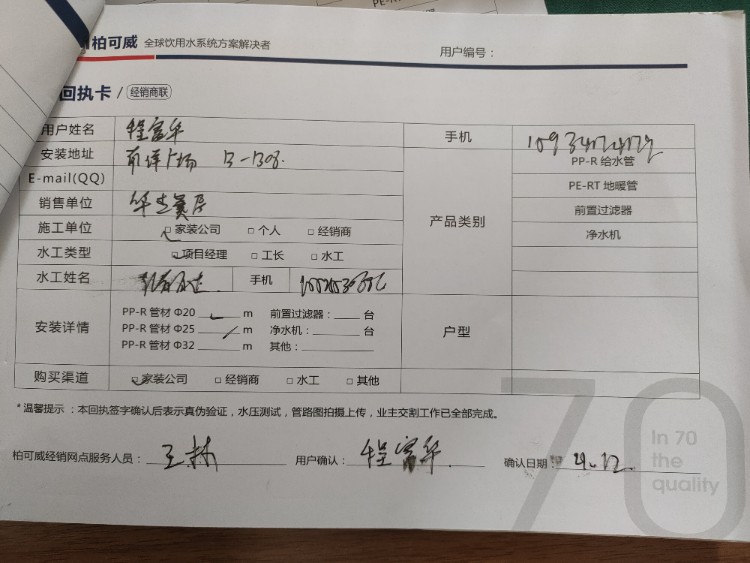 PE-R
柏可威 全球饮用水系统方案解决者
用户编号：
回执卡 / 经销商联
用户姓名 程富华 手机
安装地址 B-1308. PP-R 给水管
E-mail(QQ) PE-RT 地暖管
销售单位 产品类别 前置过滤器
施工单位 □ 家装公司 □ 个人 □ 经销商 净水机
水工类型 □ 项目经理 □ 工长 □ 水工
水工姓名 手机
安装详情 PP-R 管材 Φ20 m 前置过滤器： 台 户型
PP-R 管材 Φ25 m 净水机： 台
PP-R 管材 Φ32 m 其他：
购买渠道 □ 家装公司 □ 经销商 □ 水工 □ 其他
*温馨提示：本回执签字确认后表示真伪验证，水压测试，管路图拍摄上传，业主交割工作已全部完成。
柏可威经销网点服务人员： 王林 用户确认： 程富华. 确认日期： 4.12.
70
In 70
the
quality